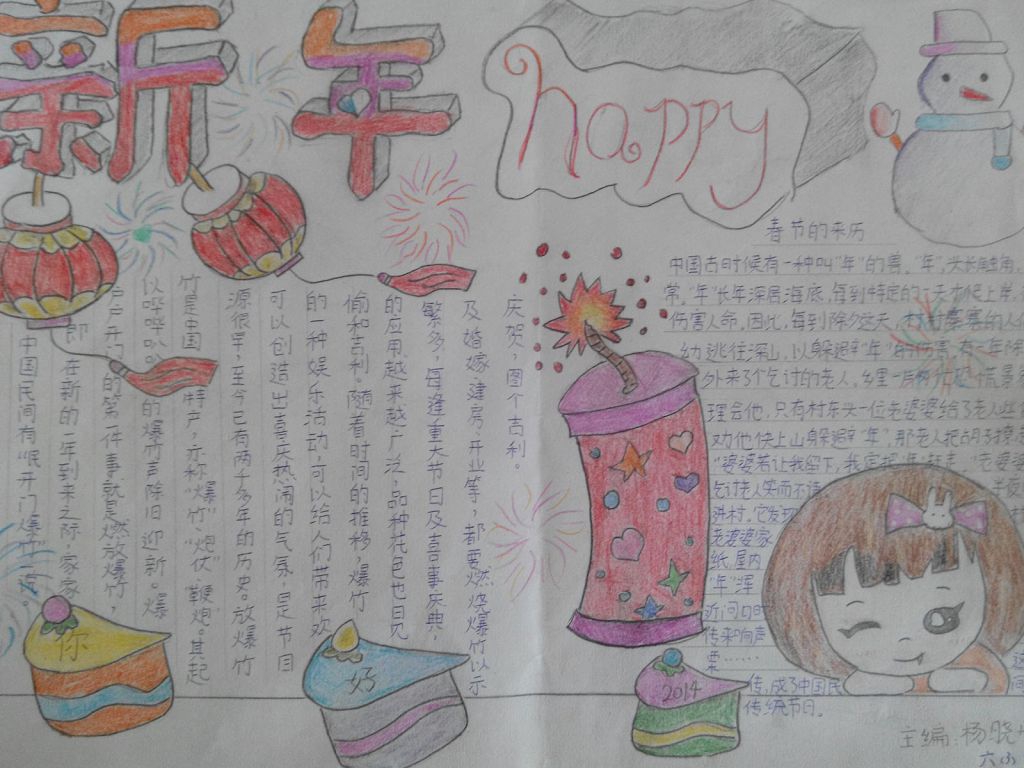 新年
happy
春节的来历
中国古时候有一种叫"年"的兽。"年"头长触角,
常。"年"长年深居海底,每到特定的一天才爬上岸,
伤害人命,因此,每到除夕这天,村村寨寨的人们
幼逃往深山,以躲避"年"的伤害。有一年除
外来了个乞讨的老人,乡里一片
理会他,只有村东头一位老婆婆给了老人
劝他快上山躲避"年",那老人把胡子撩
"婆婆若让我留下,我定把"年" "老婆婆
乞讨老人笑而不语 半夜
进村。它发现 村
老婆婆家
纸,屋内
"年"浑
近门口时
传来响声
栗……
传,成了中国民间
传统节日。
中国民间有"
即,在新的一年到来之际,家家
户户开门的第一件事就是燃放爆竹,
以哔哔叭叭的爆竹声除旧迎新。爆
竹是中国特产,亦称"爆"竹"、"炮仗"、"鞭炮"。其起
源很早,至今已有两千多年的历史。放爆竹
可以创造出喜庆热闹的气氛,是节日
的一种娱乐活动,可以给人们带来欢
愉和吉利。随着时间的推移,爆竹
的应用越来越广泛,品种花色也日见
繁多,每逢重大节日及喜事庆典,
及婚嫁、建房、开业等,都要燃烧爆竹以示
庆贺,图个吉利。
你
好
2014
主编:杨晓
六(1)